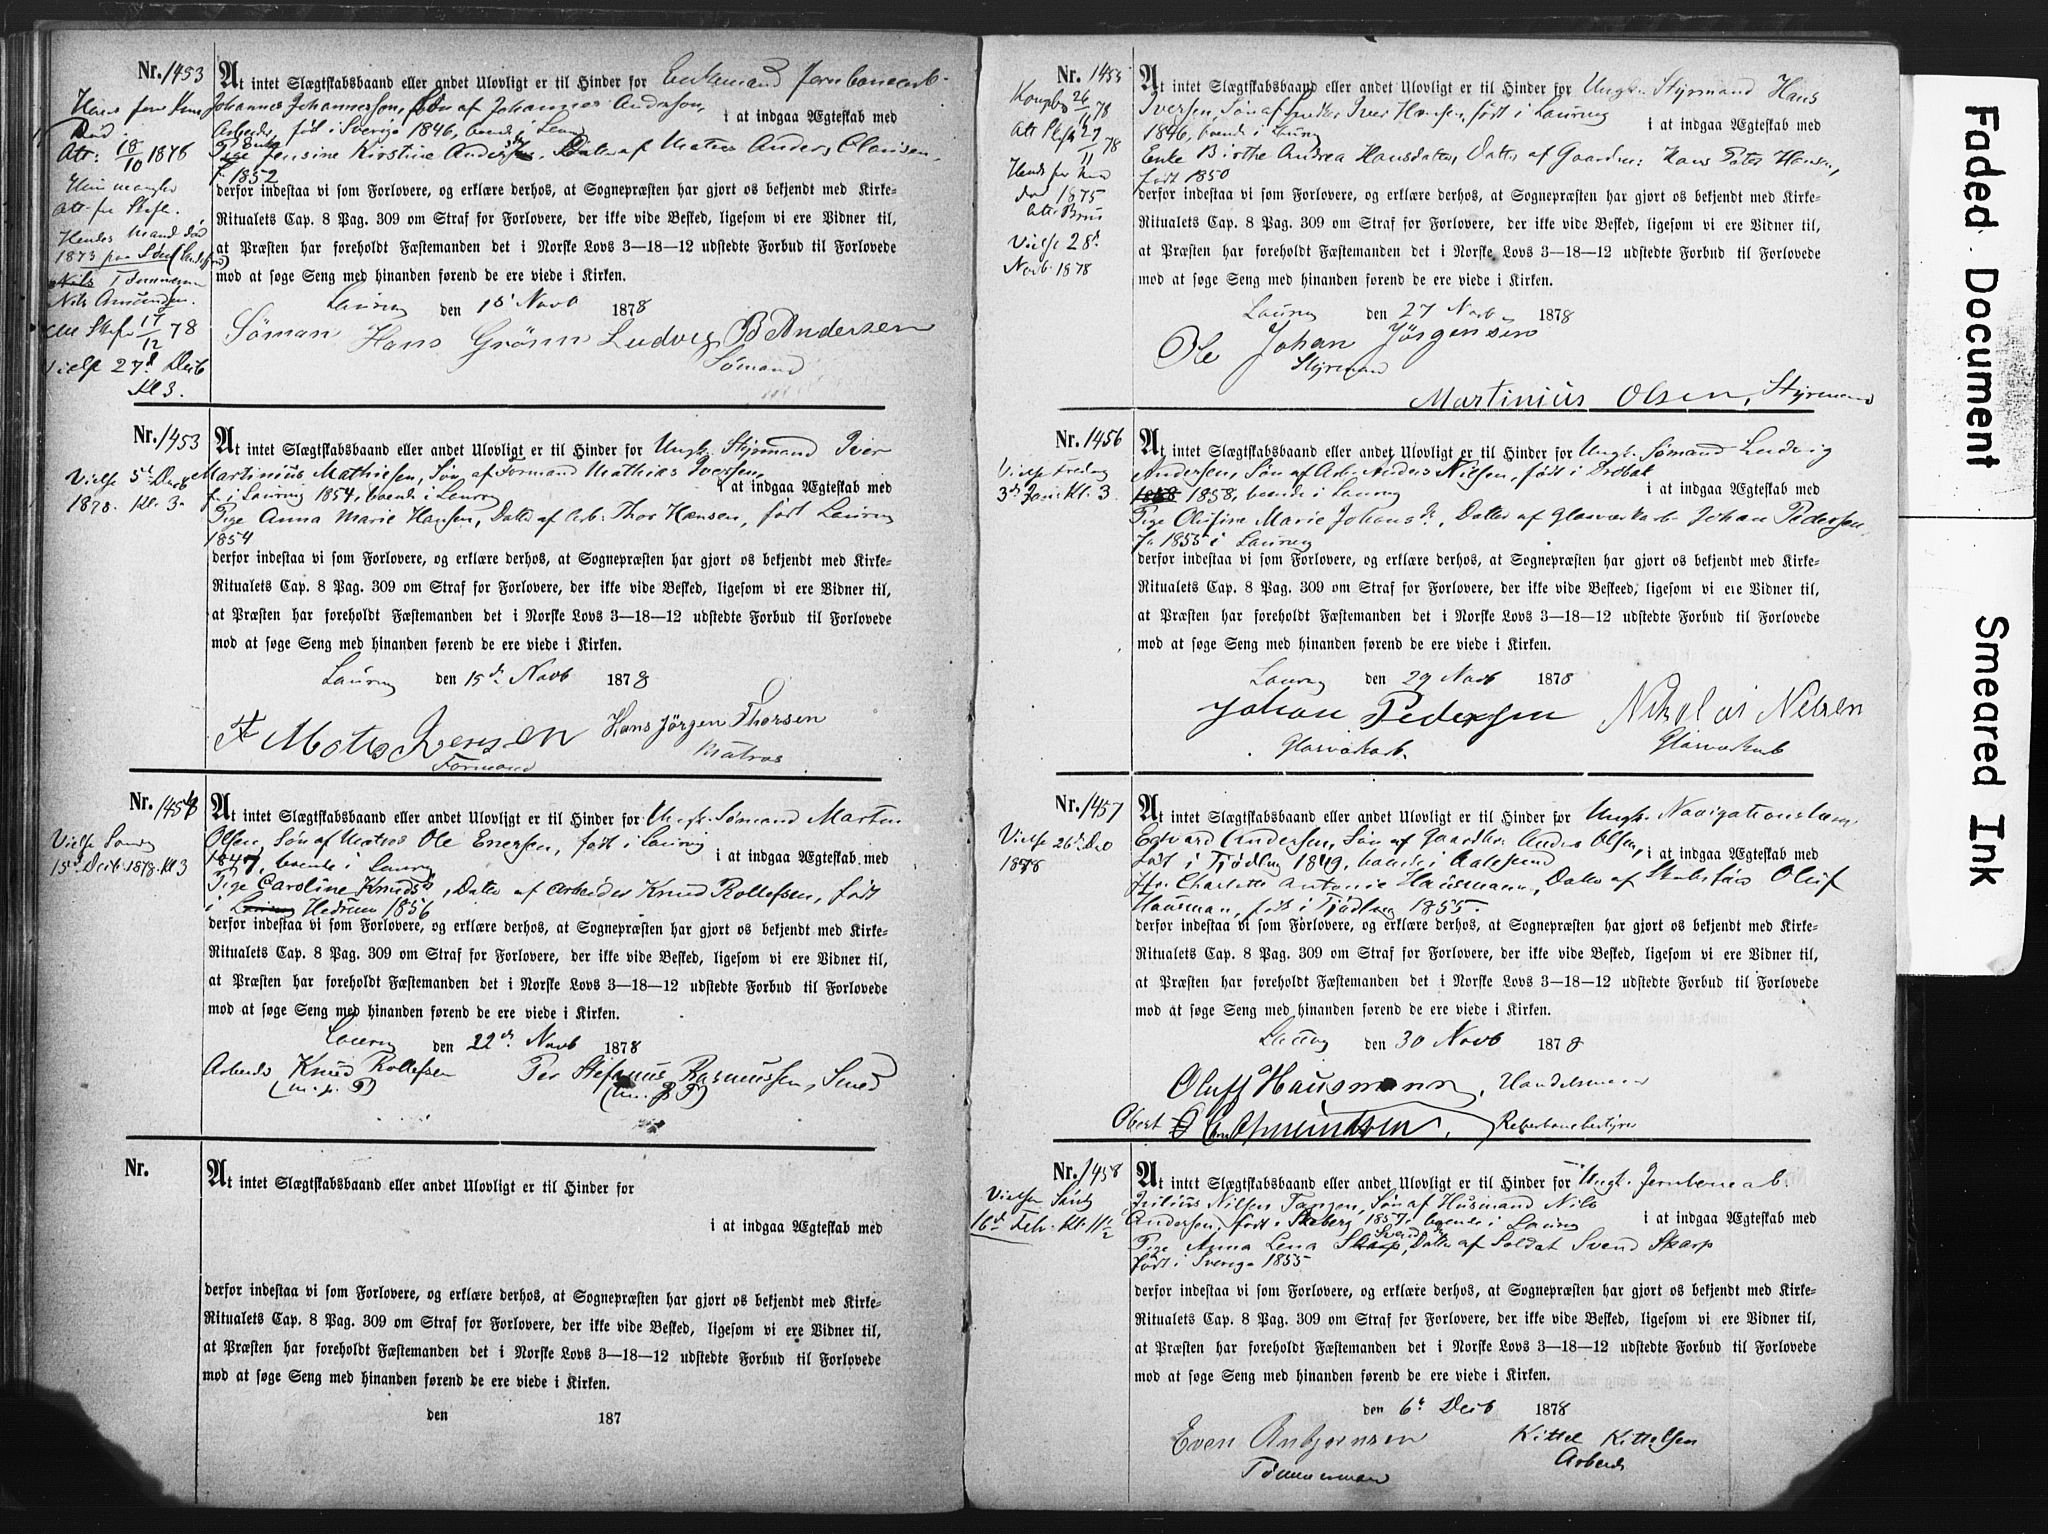 Nr. 1453
At intet Slægtskabsbaand eller andet Ulovligt er til Hinder for Enkemand Jernbanearb.
Johannes Johannessen, Søn af Johannes Anderson,
i at indgaa Ægteskab med
Arbeider, født i Sverige 1846, boende i Laurvig
Pige Enke Jensine Kirstine Andersen, Datter af Matros Anders Clausen,
f. 1852
derfor indestaa vi som Forlovere, og erklære derhos, at Sognepræsten har gjort os bekjendt med Kirke-
Ritualets Cap. 8 Pag. 309 om Straf for Forlovere, der ikke vide Besked, ligesom vi ere Vidner til,
at Præsten har foreholdt Fæstemanden det i Norske Lovs 3—18—12 udstedte Forbud til Forlovede
mod at søge Seng med hinanden førend de ere viede i Kirken.
Laurvig den 15 Novb 1878
Söman Hans Grönn Ludvig B Andersen
Sømand
Hans forr Kone
Død
Att: 18/10 1878
Hun mangler
Att. for Skifte.
Hendes Mand død
1873 paa Søen
Tømmerm
Nils Amundsen.
Skifte 17/12 78
Vielse 27d Decb
Kl 3.
Nr. 1453
At intet Slægtskabsbaand eller andet Ulovligt er til Hinder for Ungk. Styrmand Iver
Martinius Mathiesen, Søn af Formand Mathias Iversen,
i at indgaa Ægteskab med
f. i Laurvig 1854, boende i Laurvig
Pige Anna Marie Hansen, Datter af Arb. Thor Hansen, født Laurvig
1854
derfor indestaa vi som Forlovere, og erklære derhos, at Sognepræsten har gjort os bekjendt med Kirke-
Ritualets Cap. 8 Pag. 309 om Straf for Forlovere, der ikke vide Besked, ligesom vi ere Vidner til,
at Præsten har foreholdt Fæstemanden det i Norske Lovs 3—18—12 udstedte Forbud til Forlovede
mod at søge Seng med hinanden førend de ere viede i Kirken.
Laurvig den 15d Novb 1878
Hans Jörgen Thorsen
Matros
Formand
Vielse 5t Decb
1878. Kl. 3
Nr. 1454
At intet Slægtskabsbaand eller andet Ulovligt er til Hinder for Ungk. Sømand Martin
Olsen, Søn af Matros Ole Enersen, født i Laurvig
i at indgaa Ægteskab med
1847, boende i Laurvig
Pige Caroline Knudsd., Datter af Arbeider Knud Rollefsen, født
i Laurvig Hedrum 1856
derfor indestaa vi som Forlovere, og erklære derhos, at Sognepræsten har gjort os bekjendt med Kirke-
Ritualets Cap. 8 Pag. 309 om Straf for Forlovere, der ikke vide Besked, ligesom vi ere Vidner til,
at Præsten har foreholdt Fæstemanden det i Norske Lovs 3—18—12 udstedte Forbud til Forlovede
mod at søge Seng med hinanden førend de ere viede i Kirken.
Laurvig den 22d Novb 1878
Arbeider Knud Rollefsen Per Stefanus Rasmussen, Smed
(m. p. P) (m. p. P)
Vielse Søndag
15d Decb. 1878. Kl 3
Nr.
At intet Slægtskabsbaand eller andet Ulovligt er til Hinder for
i at indgaa Ægteskab med
derfor indestaa vi som Forlovere, og erklære derhos, at Sognepræsten har gjort os bekjendt med Kirke-
Ritualets Cap. 8 Pag. 309 om Straf for Forlovere, der ikke vide Besked, ligesom vi ere Vidner til,
at Præsten har foreholdt Fæstemanden det i Norske Lovs 3—18—12 udstedte Forbud til Forlovede
mod at søge Seng med hinanden førend de ere viede i Kirken.
den 187
Nr. 1455
At intet Slægtskabsbaand eller andet Ulovligt er til Hinder for Ungk. Styrmand Hans
Iversen, Søn af Snedker Iver Hansen, født i Laurvig
i at indgaa Ægteskab med
1846, boende i Laurvig
Enke Birthe Andrea Hansdatter, Datter af Gaardbr. Hans Peter Hansen,
født 1850
derfor indestaa vi som Forlovere, og erklære derhos, at Sognepræsten har gjort os bekjendt med Kirke-
Ritualets Cap. 8 Pag. 309 om Straf for Forlovere, der ikke vide Besked, ligesom vi ere Vidner til,
at Præsten har foreholdt Fæstemanden det i Norske Lovs 3—18—12 udstedte Forbud til Forlovede
mod at søge Seng med hinanden førend de ere viede i Kirken.
Laurvig den 27 Novb 1878
Ole Johan Jörgensen
Styrmand
Martinius Olsen, Styrmand
26/11 78
Att Skifte 27/11 78
død 1875
Vielse 28d
Novb. 1878
Nr. 1456
At intet Slægtskabsbaand eller andet Ulovligt er til Hinder for Ungk. Sømand Ludvig
Andersen, Søn af Arb. Anders Nilsen, født i Drøbak
i at indgaa Ægteskab med
1858 1858, boende i Laurvig
Pige Olufine Marie Johansd., Datter af Glasværkarb. Johan Pedersen
f. 1855 i Laurvig
derfor indestaa vi som Forlovere, og erklære derhos, at Sognepræsten har gjort os bekjendt med Kirke-
Ritualets Cap. 8 Pag. 309 om Straf for Forlovere, der ikke vide Beskeed, ligesom vi ere Vidner til,
at Præsten har foreholdt Fæstemanden det i Norske Lovs 3—18—12 udstedte Forbud til Forlovede
mod at søge Seng med hinanden førend de ere viede i Kirken.
Laurvig den 29 Novb 1878
Johan Pedersen Nikolai Nelsen
Glasværkarb. Glasværkarb
Vielse Fredag
3d Jan. Kl. 3.
Nr. 1457
At intet Slægtskabsbaand eller andet Ulovligt er til Hinder for Ungk. Navigationslærer
Edvard Andersen, Søn af Gaardbr. Anders Olsen,
i at indgaa Ægteskab med
født i Tjødling 1849, boende i Aalesund
Frk. Charlotte Antonie Hausmann, Datter af Skibsfører Oluf
Hausman, født i Tjødling 1855.
derfor indestaa vi som Forlovere, og erklære derhos, at Sognepræsten har gjort os bekjendt med Kirke-
Ritualets Cap. 8 Pag. 309 om Straf for Forlovere, der ikke vide Besked, ligesom vi ere Vidner til,
at Præsten har foreholdt Fæstemanden det i Norske Lovs 3—18—12 udstedte Forbud til Forlovede
mod at søge Seng med hinanden førend de ere viede i Kirken.
Laurvig den 30 Novb 1878
Oluff Hausmann, Handelsmann
Reberbanebestyrer
Vielse 26d Dec
1878
Nr. 1458
At intet Slægtskabsbaand eller andet Ulovligt er til Hinder for Ungk. Jernbanearb.
Julius Nilsen Tangen, Søn af Husmand Nils
i at indgaa Ægteskab med
Andersen, født i Skoberg 1857, boende i Laurvig
Pige Anna Lena Skarp Svendsd., Datter af Soldat Svend Skarp
født i Sverige 1855
derfor indestaa vi som Forlovere, og erklære derhos, at Sognepræsten har gjort os bekjendt med Kirke-
Ritualets Cap. 8 Pag. 309 om Straf for Forlovere, der ikke vide Besked, ligesom vi ere Vidner til,
at Præsten har foreholdt Fæstemanden det i Norske Lovs 3—18—12 udstedte Forbud til Forlovede
mod at søge Seng med hinanden førend de ere viede i Kirken.
den 6t Decb 1878
Even Anbjørnsen Kittel Kittelsen
Tømmermand Arbeider
Vielse Søndag
16d Feb. Kl. 11½
Faded Document
Smeared Ink